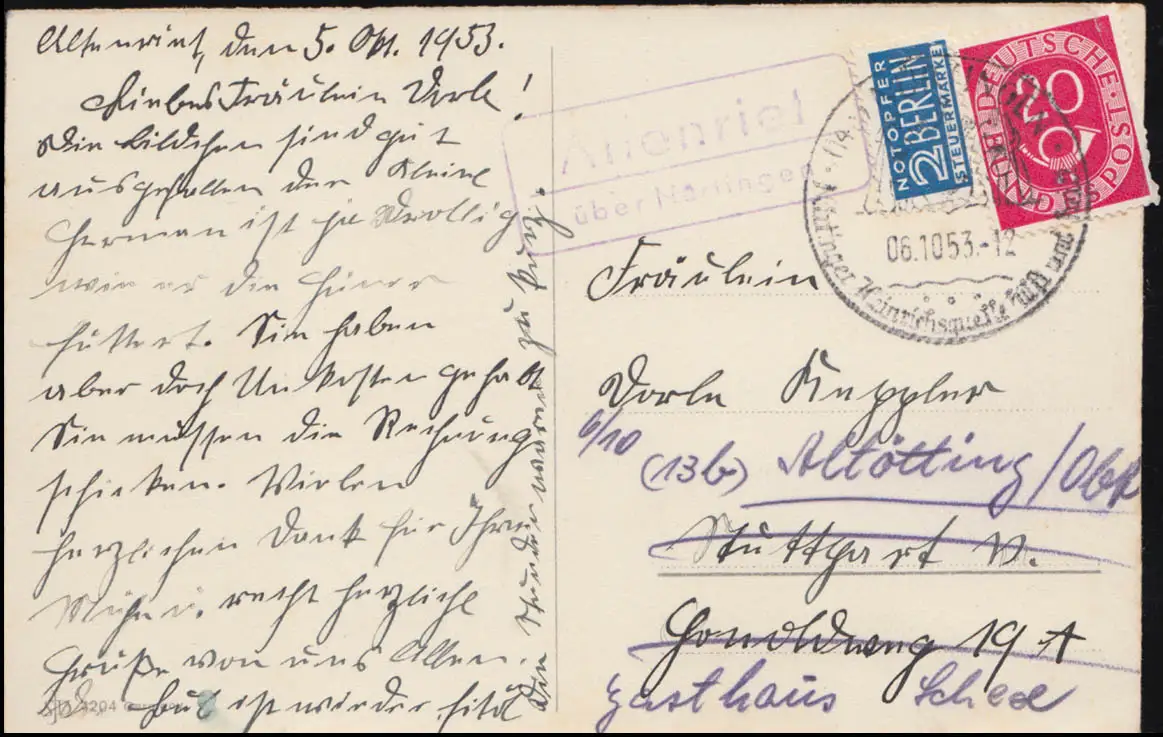 Altenriet, den 5. Okt. 1953.
Liebes Fräulein Dorle!
Die Bildchen sind gut
ausgefallen der Kleine
Herman ist ja drollig
wie er die Hüner
füttert. Sie haben
aber doch Unkosten gehabt
Sie müssen die Rechnung
schicken. Vielen
herzlichen Dank für Ihre
Mühe u. recht herzliche
Grüße von uns Allen.
ist wieder
die Stunden waren zu kurz.
Altenriet
über Nürtingen
NOTOPFER
2 BERLIN
STEUERMARKE
DEUTSCHE BUNDESPOST
20
06.10.53.-12
Heinrichsquelle
Fräulein
Dorle Keppler
6/10
(13b) Altötting/Obb
Stuttgart W.
19 A
Gasthaus